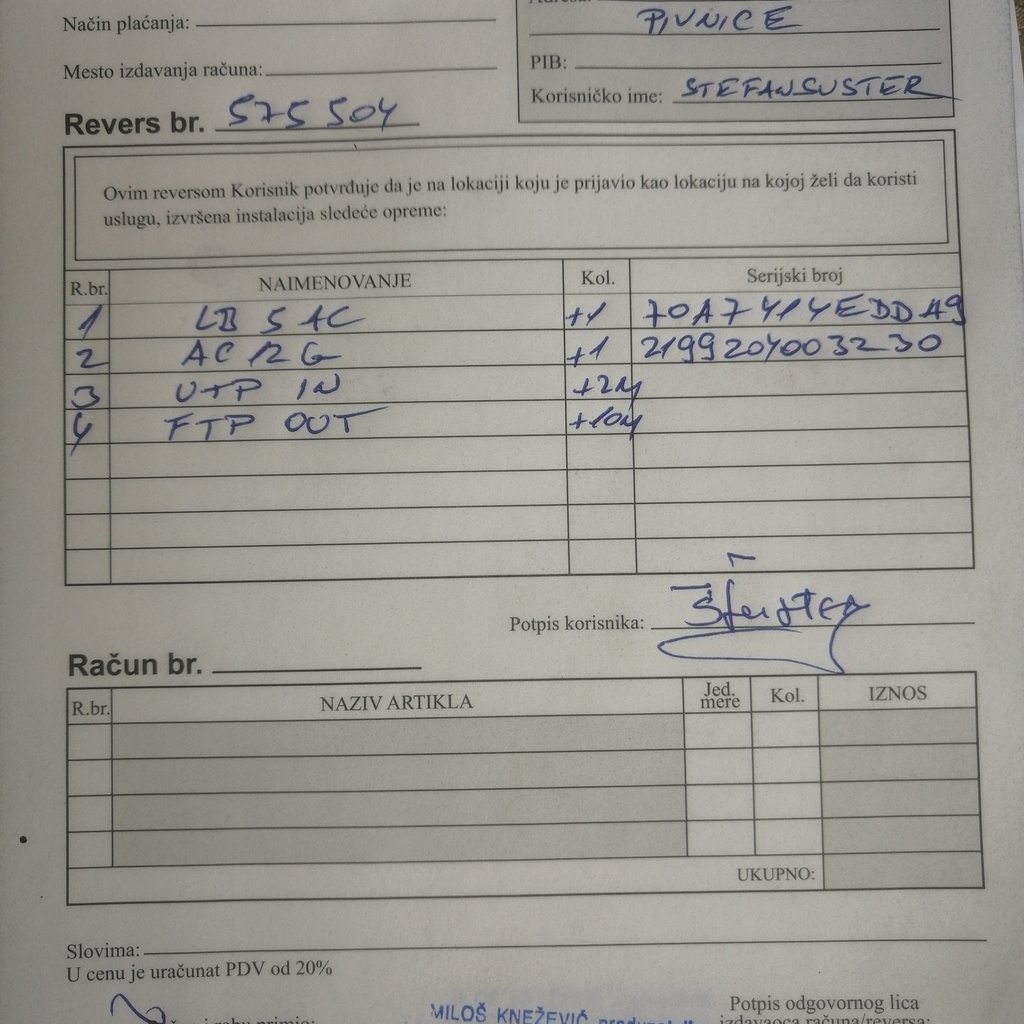 Način plaćanja:
PIVNICE
Mesto izdavanja računa:
PIB:
Korisničko ime: STEFANSUSTER
Revers br. 575504
Ovim reversom Korisnik potvrđuje da je na lokaciji koju je prijavio kao lokaciju na kojoj želi da koristi
uslugu, izvršena instalacija sledeće opreme:
R.br. NAIMENOVANJE Kol. Serijski broj
1 LB 5 AC +1 70A7414EDDA9
2 AC 12 G +1 2199204003230
3 UTP IN +2M
4 FTP OUT +10M
Potpis korisnika:
Račun br.
R.br. NAZIV ARTIKLA Jed. mere Kol. IZNOS
UKUPNO:
Slovima:
U cenu je uračunat PDV od 20%
MILOŠ KNEŽEVIĆ
Potpis odgovornog lica
izdavaoca računa/reversa: